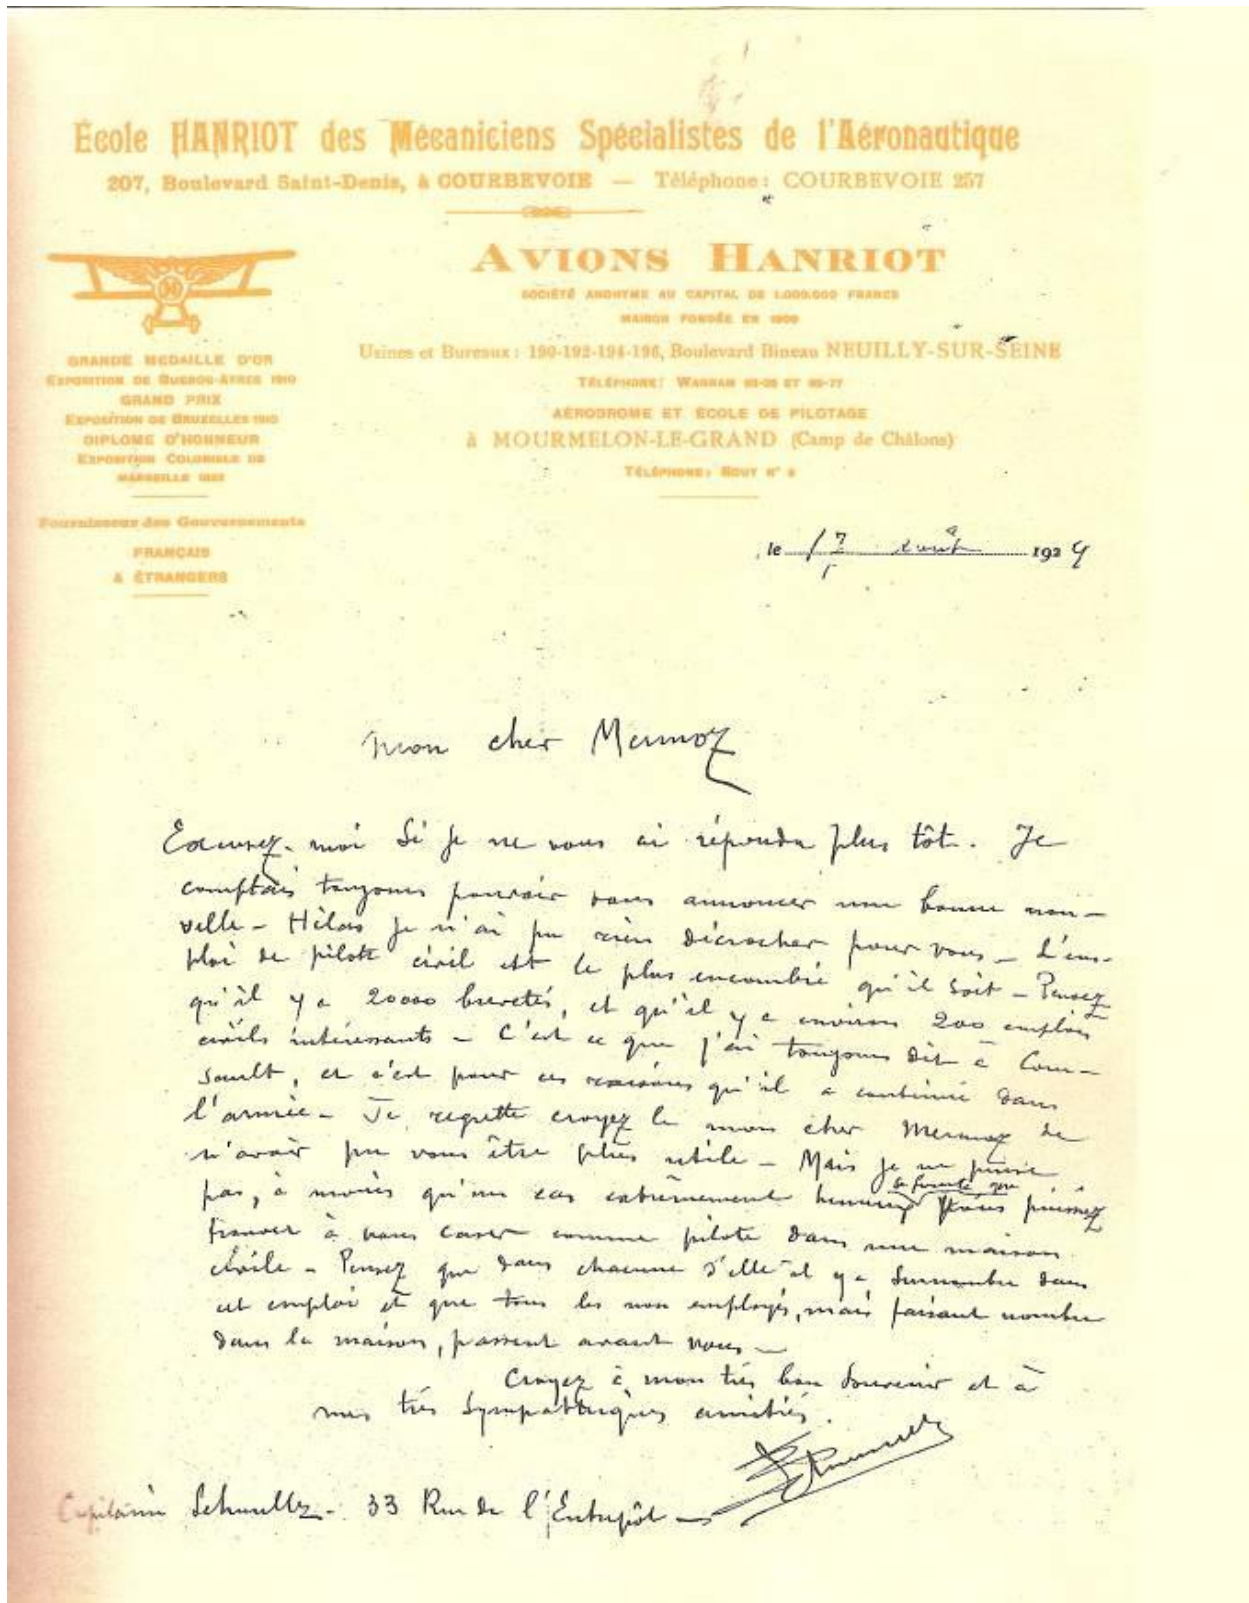 École HANRIOT des Mécaniciens Spécialistes de l'Aéronautique
207, Boulevard Saint-Denis, à COURBEVOIE — Téléphone: COURBEVOIE 257
AVIONS HANRIOT
SOCIÉTÉ ANONYME AU CAPITAL DE 1.000.000 FRANCS
MAISON FONDÉE EN
Usines et Bureaux: 190-192-194-196, Boulevard Bineau NEUILLY-SUR-SEINE
TÉLÉPHONE: WAGRAM ET
AÉRODROME ET ÉCOLE DE PILOTAGE
à MOURMELON-LE-GRAND (Camp de Châlons)
TÉLÉPHONE: BOUY N°
GRANDE MEDAILLE D'OR
EXPOSITION DE BUENOS-AYRES 1910
GRAND PRIX
EXPOSITION DE BRUXELLES 1910
DIPLOME D'HONNEUR
EXPOSITION COLONIALE DE
MARSEILLE
Fournisseur des Gouvernements
FRANÇAIS
& ÉTRANGERS
le 17 août 1924
Mon cher Mermoz
Excusez-moi si je ne vous ai répondu plus tôt. Je
comptais toujours pouvoir vous annoncer une bonne nou-
velle - Hélas je n'ai pu rien décrocher pour vous - L'em-
ploi de pilote civil est le plus encombré qu'il soit - Pensez
qu'il y a 20000 brevetés, et qu'il y a environ 200 emplois
civils intéressants - C'est ce que j'ai toujours dit à Cour-
sault, et c'est pour ces raisons qu'il a continué dans
l'armée - Je regrette croyez le mon cher Mermoz de
n'avoir pu vous être plus utile - Mais je ne pense
pas, à moins qu'un cas extrêmement heureux se présente, que vous puissiez
trouver à vous caser comme pilote dans une maison
civile - Pensez que dans chacune d'elle il y a surnombre dans
cet emploi et que tous les non employés, mais faisant nombre
dans la maison, passent avant vous -
Croyez à mon très bon souvenir et à
mes très sympathiques amitiés.
Capitaine 33 Rue de l'Entrepôt -